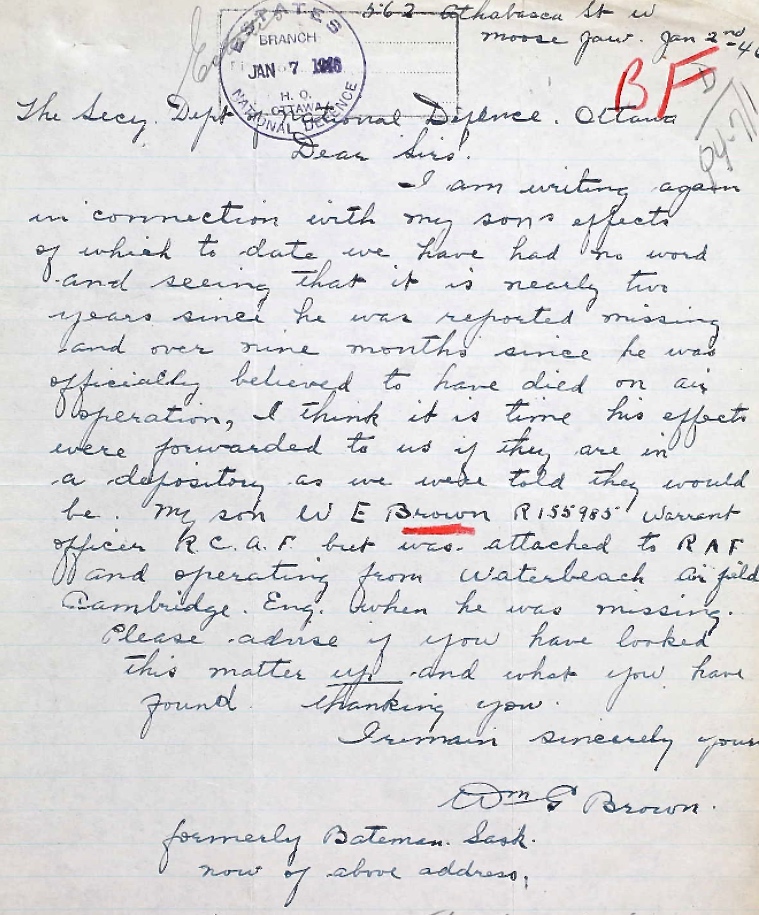 562 Athabasca St W
Moose Jaw. Jan 2nd-46
ESTATES
BRANCH
JAN 7 1946
H. O.
OTTAWA
NATIONAL DEFENCE
BF
D
The Secy. Dept National Defence. Ottawa
Dear Sirs.
I am writing again
in connection with my sons effects
of which to date we have had no word
and seeing that it is nearly two
years since he was reported missing
and over nine months since he was
officially believed to have died on air
operation, I think it is time his effects
were forwarded to us if they are in
a depository as we were told they would
be. My son W E Brown R155985 Warrant
officer R.C.A.F. but was attached to RAF
and operating from Waterbeach air field
Cambridge. Eng. when he was missing.
Please advise if you have looked
this matter up and what you have
found. thanking you.
I remain sincerely yours
Wm G Brown.
formerly Bateman. Sask.
now of above address,